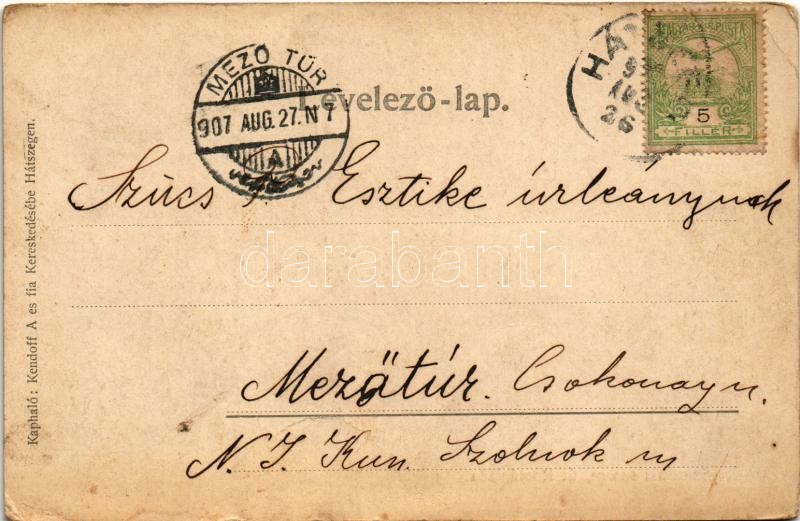 MEZŐ TÚR
907 AUG. 27. N 7
A
Levelező-lap.
MAGYAR KIR. POSTA
5
FILLÉR
26
Szücs Esztike úrleánynak
darabanth
Mezőtúr. Csokonay u.
N. J. Kun. Szolnok m
Kapható: Kendoff A es fia Kereskedésébe Hátszegen.